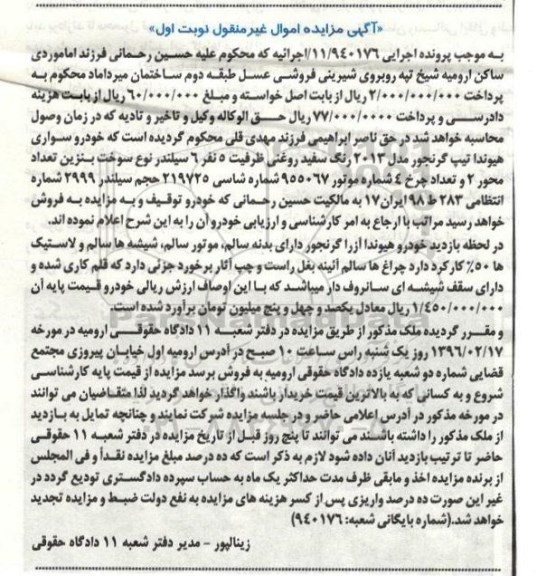 «آگهی مزایده اموال غیرمنقول نوبت اول»
به موجب پرونده اجرایی ۱۱/۹۴۰۱۷۶/اجرائیه که محکوم علیه حسین رحمانی فرزند اماموردی
ساکن ارومیه شیخ تپه روبروی شیرینی فروشی عسل طبقه دوم ساختمان میرداماد محکوم به
پرداخت ۲/۰۰۰/۰۰۰/۰۰۰ ریال از بابت اصل خواسته و مبلغ ۶۰/۰۰۰/۰۰۰ ریال از بابت هزینه
دادرسی و پرداخت ۷۷/۰۰۰/۰۰۰۰ ریال حق الوکاله وکیل و تاخیر و تادیه که در زمان وصول
محاسبه خواهد شد در حق ناصر ابراهیمی فرزند مهدی قلی محکوم گردیده است که خودرو سواری
هیوندا تیپ گرنجور مدل ۲۰۱۳ رنگ سفید روغنی ظرفیت ۵ نفر ۶ سیلندر نوع سوخت بنزین تعداد
محور ۲ و تعداد چرخ ۴ شماره موتور ۹۵۵۰۶۷ شماره شاسی ۲۱۹۷۲۵ حجم سیلندر ۲۹۹۹ شماره
انتظامی ۲۸۳ ط ۹۸ ایران ۱۷ به مالکیت حسین رحمانی که خودرو توقیف و به مزایده به فروش
خواهد رسید مراتب با ارجاع به امر کارشناسی و ارزیابی خودرو آن را به این شرح اعلام نموده اند.
در لحظه بازدید خودرو هیوندا آزرا گرنجور دارای بدنه سالم، موتور سالم، شیشه ها سالم و لاستیک
ها ۵۰٪ کارکرد دارد چراغ ها سالم آئینه بغل راست و چپ آثار برخورد جزئی دارد که قلم کاری شده و
دارای سقف شیشه ای سانروف دار میباشد که با این اوصاف ارزش ریالی خودرو قیمت پایه آن
۱/۴۵۰/۰۰۰/۰۰۰ ریال معادل یکصد و چهل و پنج میلیون تومان برآورد شده است.
و مقرر گردیده ملک مذکور از طریق مزایده در دفتر شعبه ۱۱ دادگاه حقوقی ارومیه در مورخه
۱۳۹۶/۰۲/۱۷ روز یک شنبه راس ساعت ۱۰ صبح در آدرس ارومیه اول خیابان پیروزی مجتمع
قضایی شماره دو شعبه یازده دادگاه حقوقی ارومیه به فروش برسد مزایده از قیمت پایه کارشناسی
شروع و به کسانی که به بالاترین قیمت خریدار باشند واگذار خواهد گردید لذا متقاضیان می توانند
در مورخه مذکور در آدرس اعلامی حاضر و در جلسه مزایده شرکت نمایند و چنانچه تمایل به بازدید
از ملک مذکور را داشته باشند می توانند تا پنج روز قبل از تاریخ مزایده در دفتر شعبه ۱۱ حقوقی
حاضر تا ترتیب بازدید آنان داده شود لازم به ذکر است که ده درصد مبلغ مزایده نقداً و فی المجلس
از برنده مزایده اخذ و مابقی ظرف مدت حداکثر یک ماه به حساب سپرده دادگستری تودیع گردد در
غیر این صورت ده درصد واریزی پس از کسر هزینه های مزایده به نفع دولت ضبط و مزایده تجدید
خواهد شد.(شماره بایگانی شعبه: ۹۴۰۱۷۶)
زینالپور - مدیر دفتر شعبه ۱۱ دادگاه حقوقی